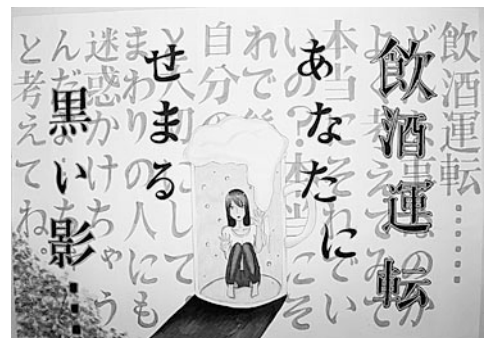 飲酒運転
あなたに
せまる
黒い影…
飲酒運転……
事なのか
考えてみて
本当にそれでい
いの？本当にそ
れで
自分の
大切にして
まわりの人にも
迷惑かけちゃう
んだよ
と考えてね。